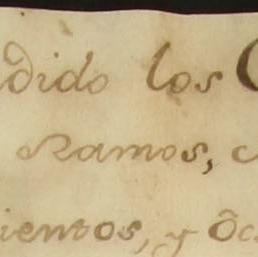 dido los
Ramos,
ientos, y Oc